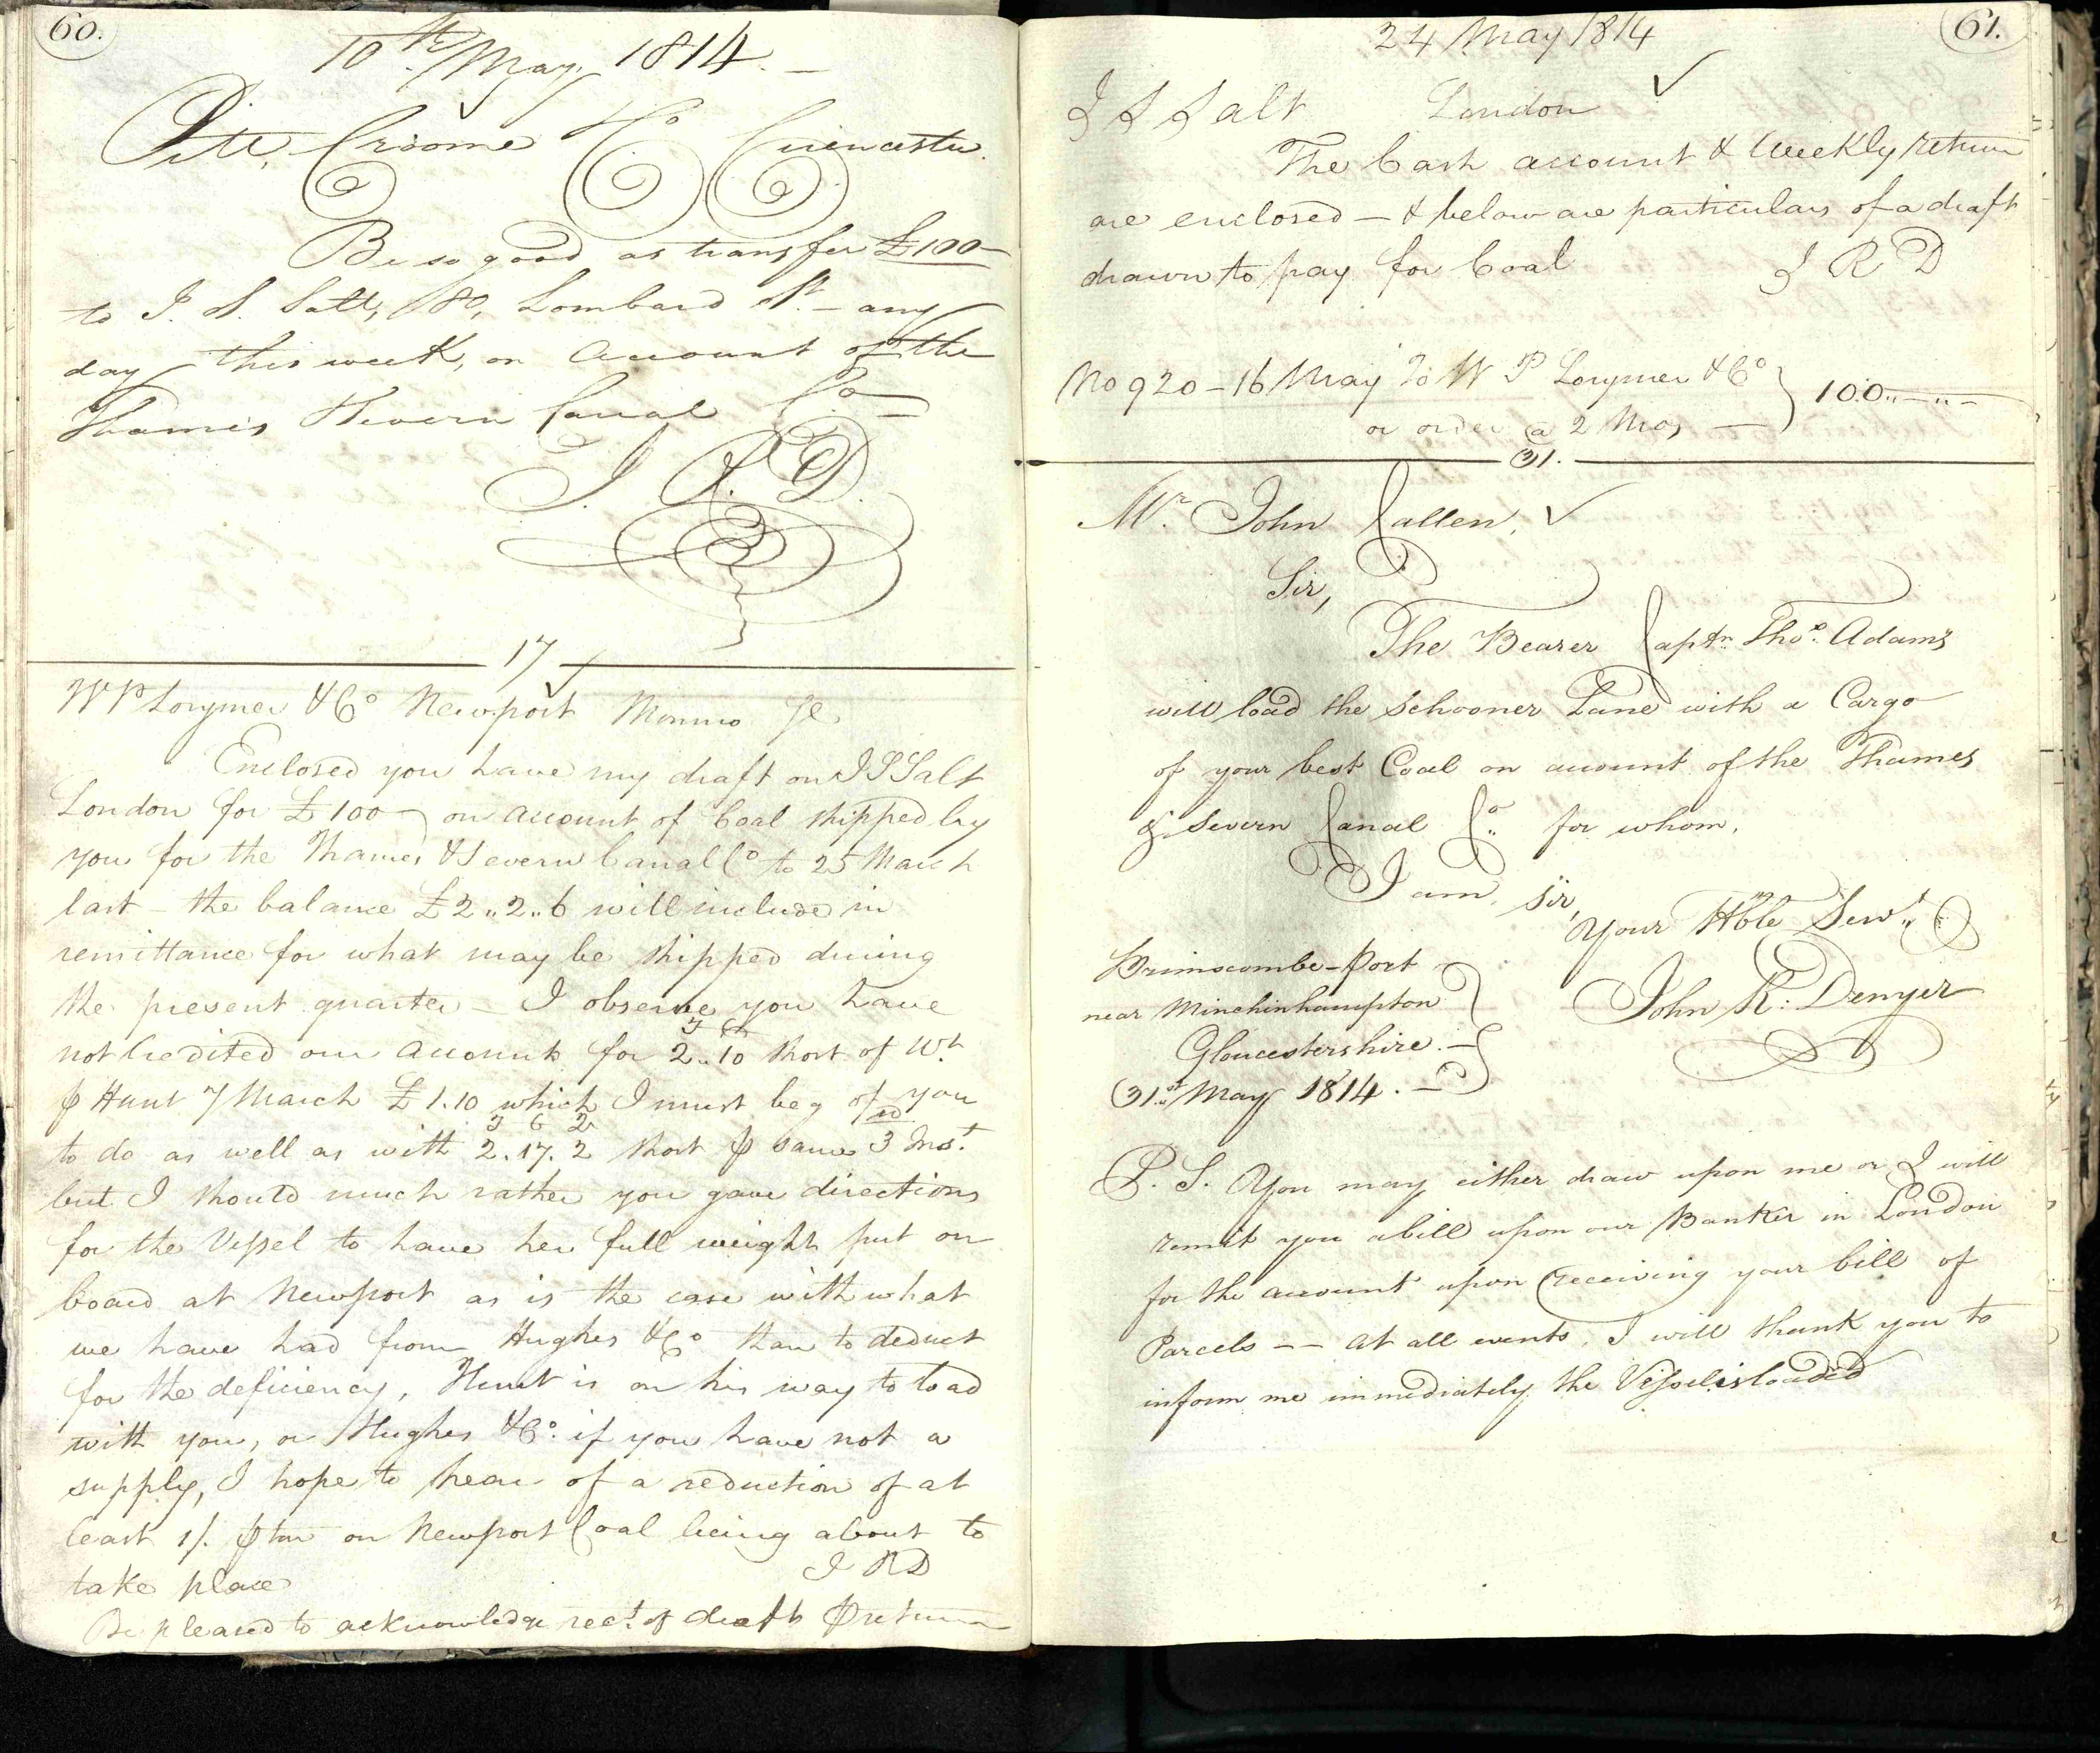 60.
10th May, 1814. —
Pitt, Croome & Co Cirencester.
Be so good as transfer £100—
to J. S. Salt, 80, Lombard St. — any
day this week, on Account of the
Thames Severn Canal Co—
J. R. D.
17
W P Lorymer & Co Newport Monmo
Enclosed you have my draft on J S Salt
London for £100 — on account of Coal shipped by
you for the Thames & Severn Canal Co to 25 March
last — the balance £2„2„6 will include in
remittance for what may be shipped during
the present quarter — I observe you have
T C
not credited our Account for 2„10 short of Wt.
⅌ Hunt 7 March £1.10 which I must beg of you
T C Q
to do as well as with 2.17.2 short ⅌ same 3rd Inst.
but I should much rather you gave directions
for the Vessel to have her full weight put on
board at Newport as is the case with what
we have had from Hughes & Co than to deduct
for the deficiency, Hunt is on his way to load
with you, or Hughes & Co: if you have not a
supply, I hope to hear of a reduction of at
least 1/. ⅌ ton on Newport Coal being about to
take place
J R D
Be pleased to acknowledge rect. of draft ⅌ return
61.
24 May 1814
J S Salt London
The Cash account & Weekly return
are enclosed — & below are particulars of a draft
drawn to pay for Coal
J R D
No 920 — 16 May To W P Lorymer & Co } 100„—„—
or order @ 2 Mos —
31.
Mr. John Callen,
Sir,
The Bearer Captn. Thos. Adams
will load the Schooner Jane with a Cargo
of your best Coal on account of the Thames
& Severn Canal Co. for whom,
I am, Sir,
Your Hble Servt.
Brimscombe-Port
near Minchinhampton
Gloucestershire. —
31st. May 1814. —
John R: Denyer
P. S. You may either draw upon me or I will
remit you a bill upon our Banker in London
for the account upon receiving your bill of
Parcels -- at all events, I will thank you to
inform me immediately the Vessel is loaded